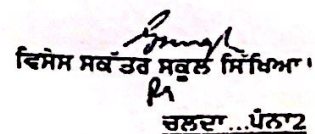 ਵਿਸੇਸ ਸਕੱਤਰ ਸਕੂਲ ਸਿੱਖਿਆ।
ਚਲਦਾ...ਪੰਨਾ2